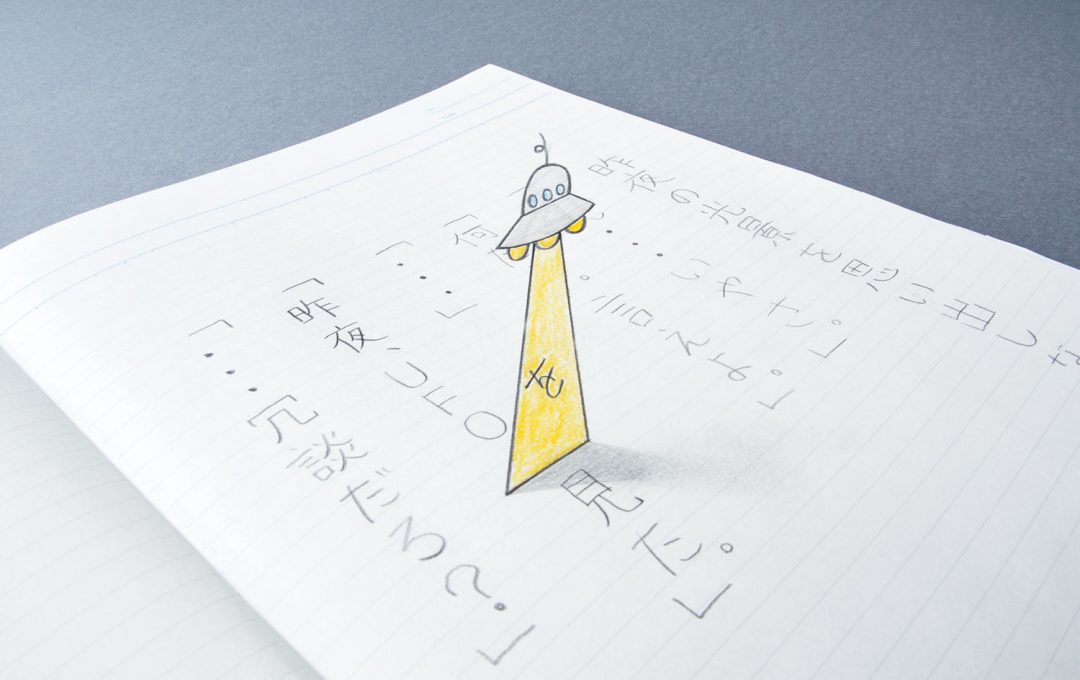 昨夜の光景を思い出しな
・・・いや
「何 言えよ。」
「・・・」
「昨夜、UFOを見た。」
「・・・冗談だろ？」